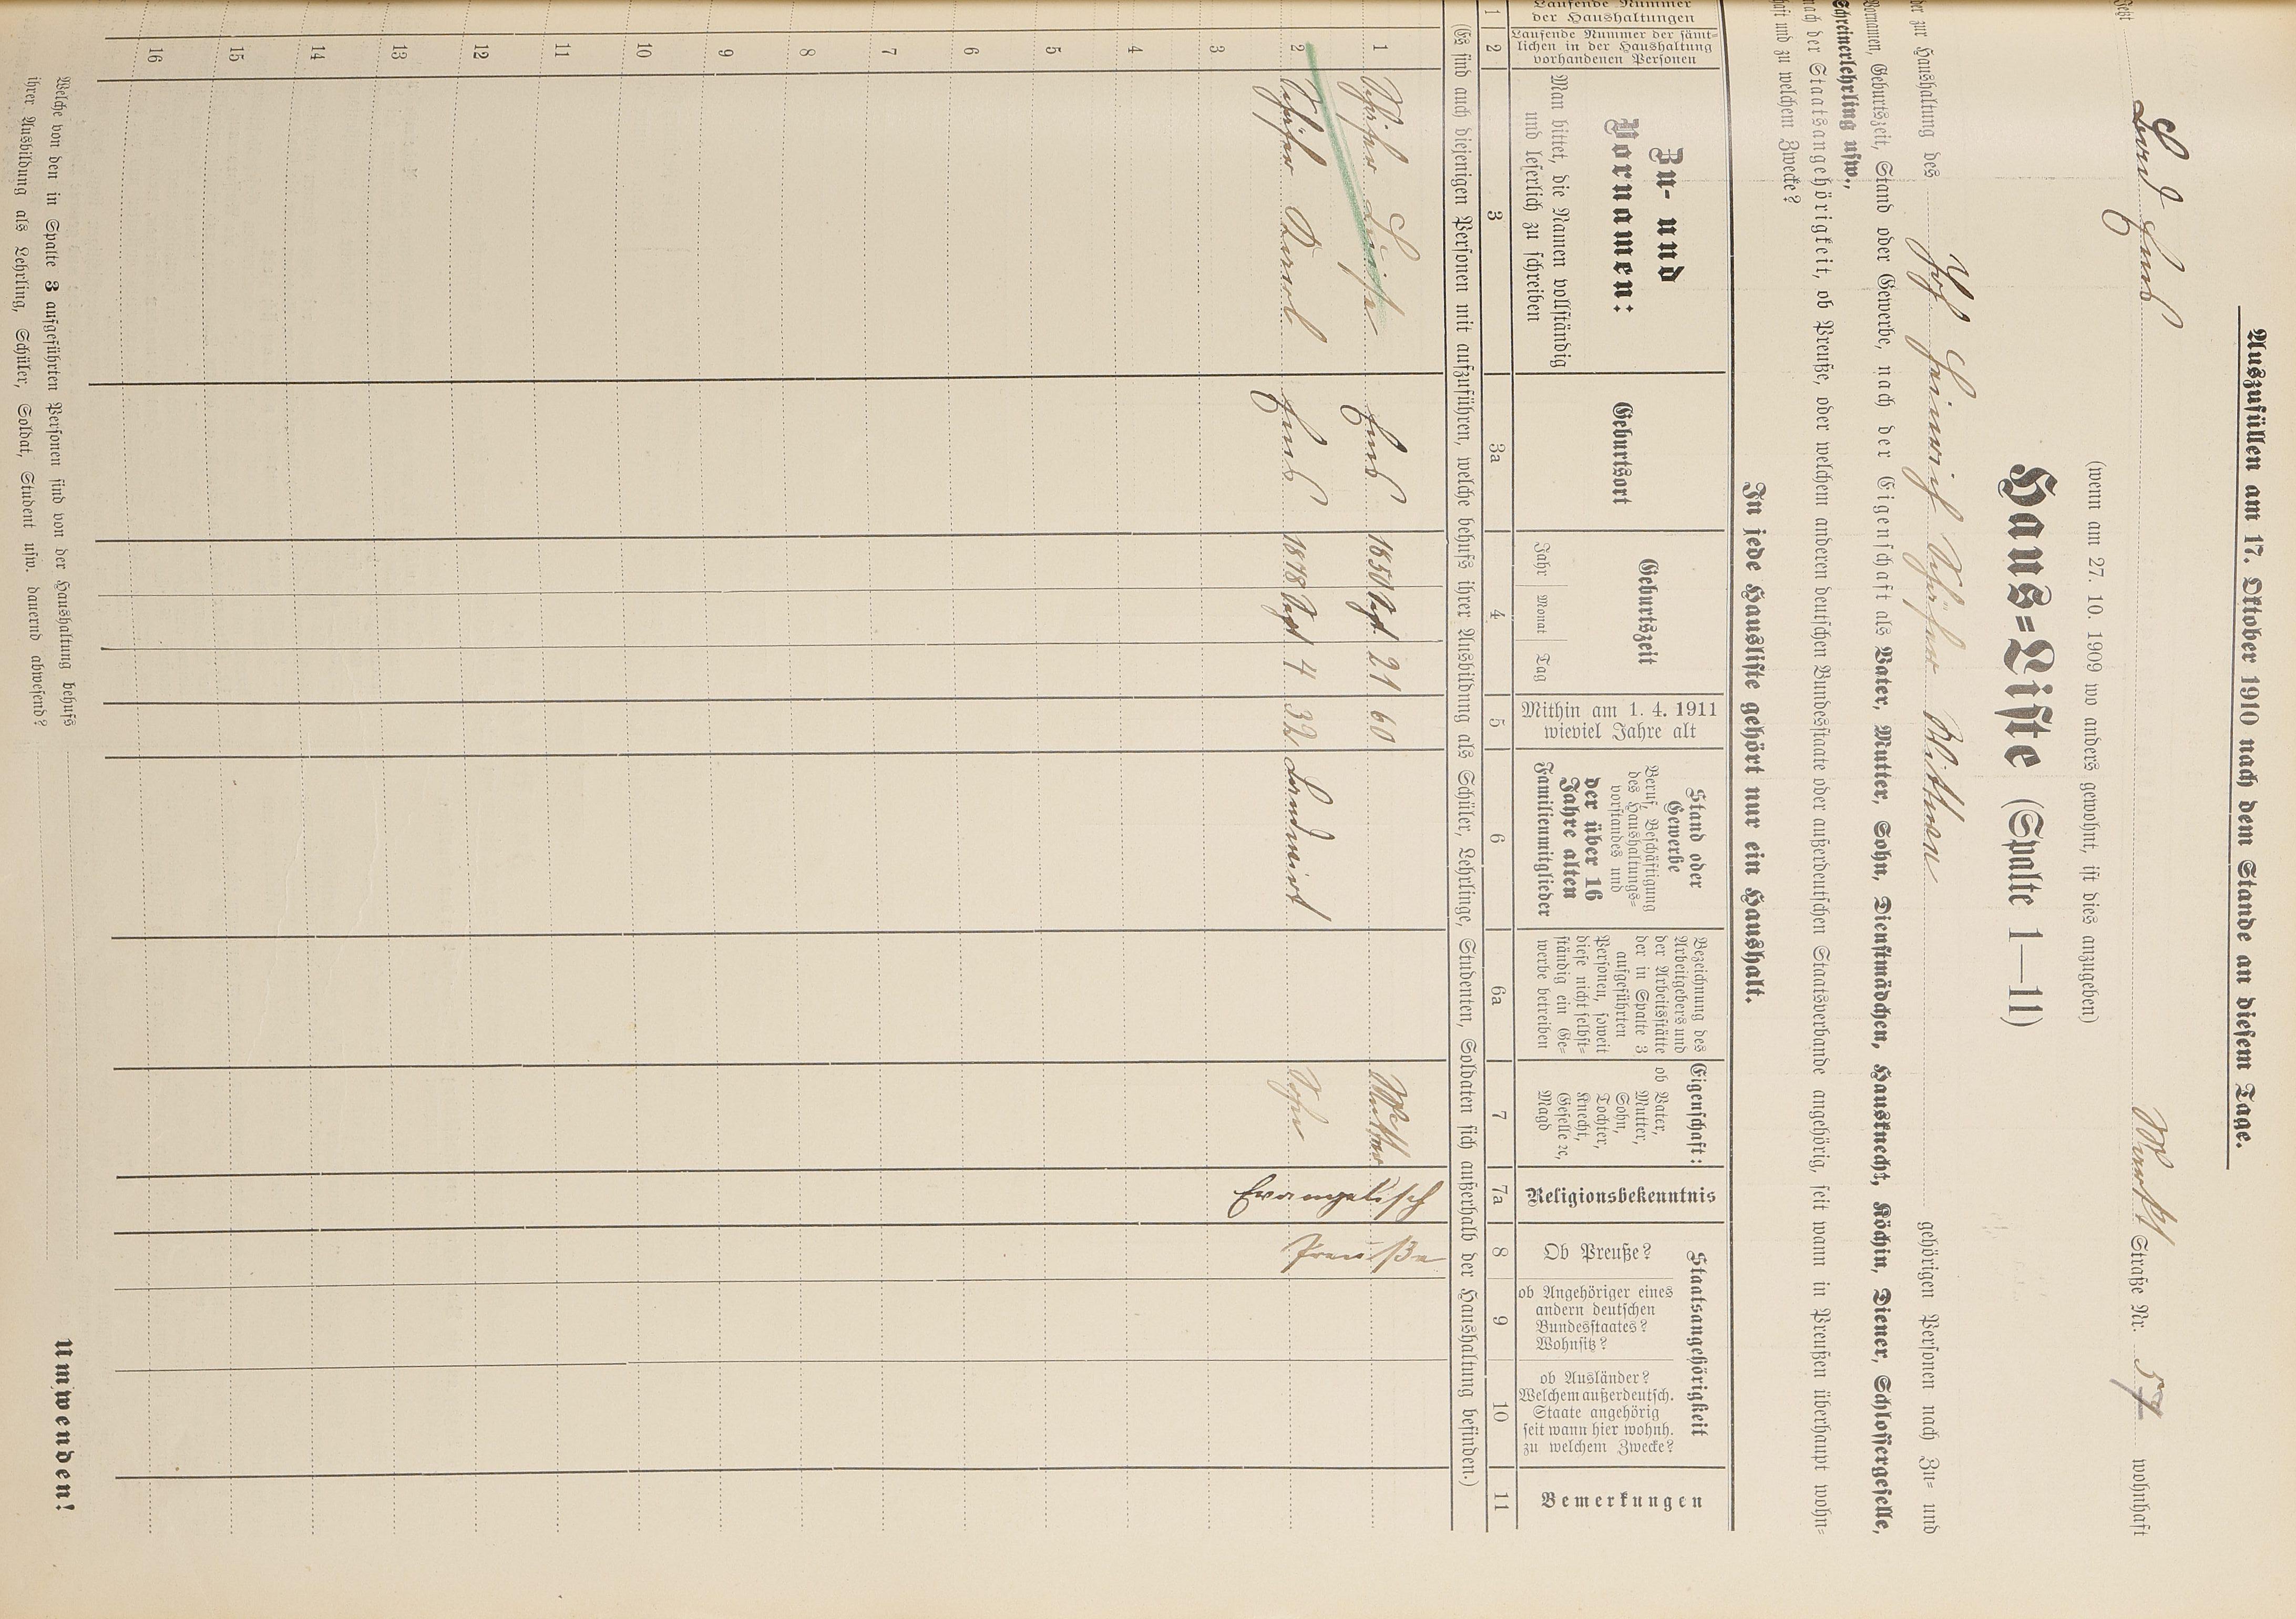 Auszufüllen am 17. Oktober 1910 nach dem Stande an diesem Tage.
Jetzt Bad Ems Markt Straße Nr. 57 wohnhaft
(wenn am 27. 10. 1909 wo anders gewohnt, ist dies anzugeben)
Haus=Liste (Spalte 1—11)
der zur Haushaltung des Witwe gehörigen Personen nach Zu= und
Vornamen, Geburtszeit, Stand oder Gewerbe, nach der Eigenschaft als Vater, Mutter, Sohn, Dienstmädchen, Hausknecht, Köchin, Diener, Schlossergeselle,
Schreinerlehrling usw.,
nach der Staatsangehörigkeit, ob Preuße, oder welchem anderen deutschen Bundesstaate oder außerdeutschen Staatsverbande angehörig, seit wann in Preußen überhaupt wohn=
haft und zu welchem Zwecke?
In jede Hausliste gehört nur ein Haushalt.
Laufende Nummer
der Haushaltungen
Laufende Nummer der sämt=
lichen in der Haushaltung
vorhandenen Personen
Zu= und
Vornamen:
Man bittet, die Namen vollständig
und leserlich zu schreiben
Geburtsort
Geburtszeit
Jahr Monat Tag
Mithin am 1. 4. 1911
wieviel Jahre alt
Stand oder
Gewerbe
Beruf, Beschäftigung
des Haushaltungs=
vorstandes und
der über 16
Jahre alten
Familienmitglieder
Bezeichnung des
Arbeitgebers und
der Arbeitsstätte
der in Spalte 3
aufgeführten
Personen, soweit
diese nicht selbst=
ständig ein Ge=
werbe betreiben
Eigenschaft:
ob Vater,
Mutter,
Sohn,
Tochter,
Knecht,
Geselle ec,
Magd
Religionsbekenntnis
Staatsangehörigkeit
Ob Preuße?
ob Angehöriger eines
andern deutschen
Bundesstaates?
Wohnsitz?
ob Ausländer?
Welchem außerdeutsch.
Staate angehörig
seit wann hier wohnh.
zu welchem Zwecke?
Bemerkungen
1 2 3 3a 4 5 6 6a 7 7a 8 9 10 11
(Es sind auch diejenigen Personen mit aufzuführen, welche behufs ihrer Ausbildung als Schüler, Lehrlinge, Studenten, Soldaten sich außerhalb der Haushaltung befinden.)
1 Luise Ems 1850 Sept. 21 60 Mutter Evangelisch Preuße
2 Ems 1878 Sept 4 32 Landwirt Sohn
3
4
5
6
7
8
9
10
11
12
13
14
15
16
Welche von den in Spalte 3 aufgeführten Personen sind von der Haushaltung behufs
ihrer Ausbildung als Lehrling, Schüler, Soldat, Student usw. dauernd abwesend?
Umwenden!